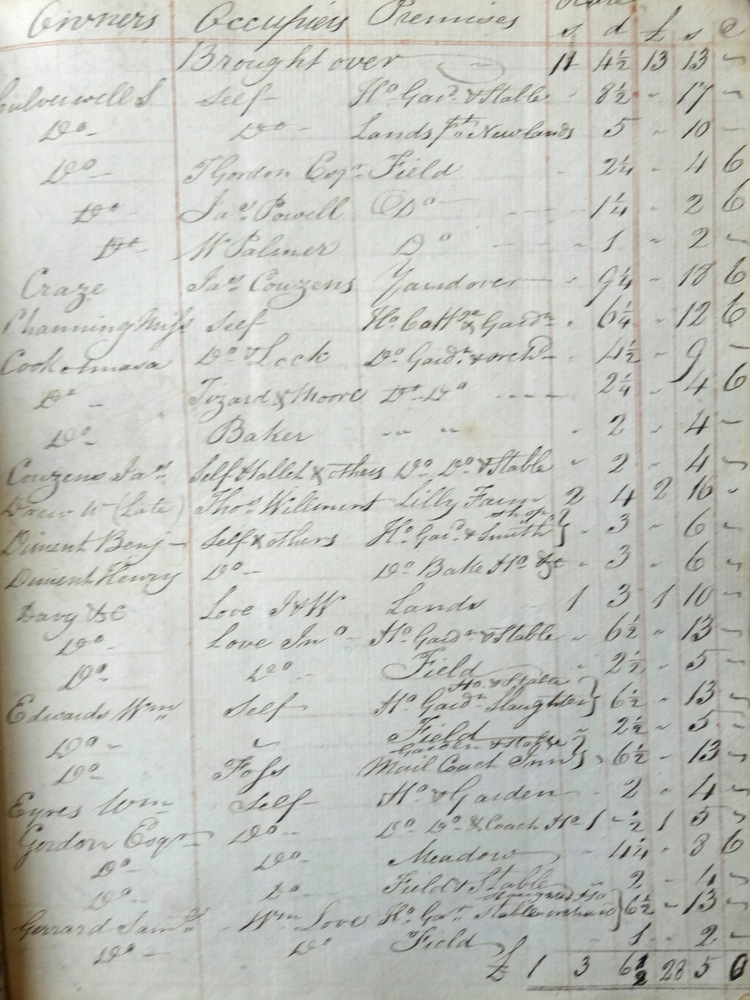 Owners Occupiers Premises s d £ s d
Brought over 11 4½ 13 13 -
Culverwell S Self Ho Gard. & Stable - 8½ - 17 -
Do - Do - Lands pt. Newlands 5 - 10 -
Do T Gordon Esqr. Field 2¼ - 4 6
Do Jas. Powell Do 1¼ - 2 6
Do W Palmer Do - 1 - 2 -
Craze Jas. Couzens Yandover - 9¼ - 18 6
Channing Miss Self Ho. & Gardn. - 6¼ - 12 6
Cook Amasa Do & Lock Do Gardn. & orchd. - 4½ - 9 -
Do - Tizard & Moore Do Do 2¼ - 4 6
Do Baker " " - 2 - 4 -
Couzens Jas. Self Hallet & others Do Do & Stable - 2 - 4 -
Drew W (Late) Thos. Lilly Farm 2 4 2 16 -
Diment Benj - Self & others Ho. Gar. & Smith Shop } - 3 - 6 -
Diment Henry Do - Do Bake Ho &c - 3 - 6 -
Davy &c Love J & W Lands 1 3 1 10 -
Do Love Jno - Ho. Gardn. & Stable - 6½ - 13 -
Do Do Field - 2½ - 5 -
Edwards Wm Self Ho Gardn. Slaughter Ho. & Stable } 6½ - 13 -
Do - Field 2½ - 5 -
Do Foss Mail Coach Inn Garden & Stable } - 6½ - 13 -
Eyres Wm Self Ho. & Garden - 2 - 4 -
Gordon Esqr Do - Do Do & Coach Ho 1 - ½ 1 5 -
Do Do Meadow - 4¼ - 8 6
Do Do Field & Stable 2 - 4 -
Gerrard Saml. Wm Love Ho. Gar. Stable } 6½ - 13 -
Do Do Field - 1 - 2 -
£ 1 3 6½ 28 5 0